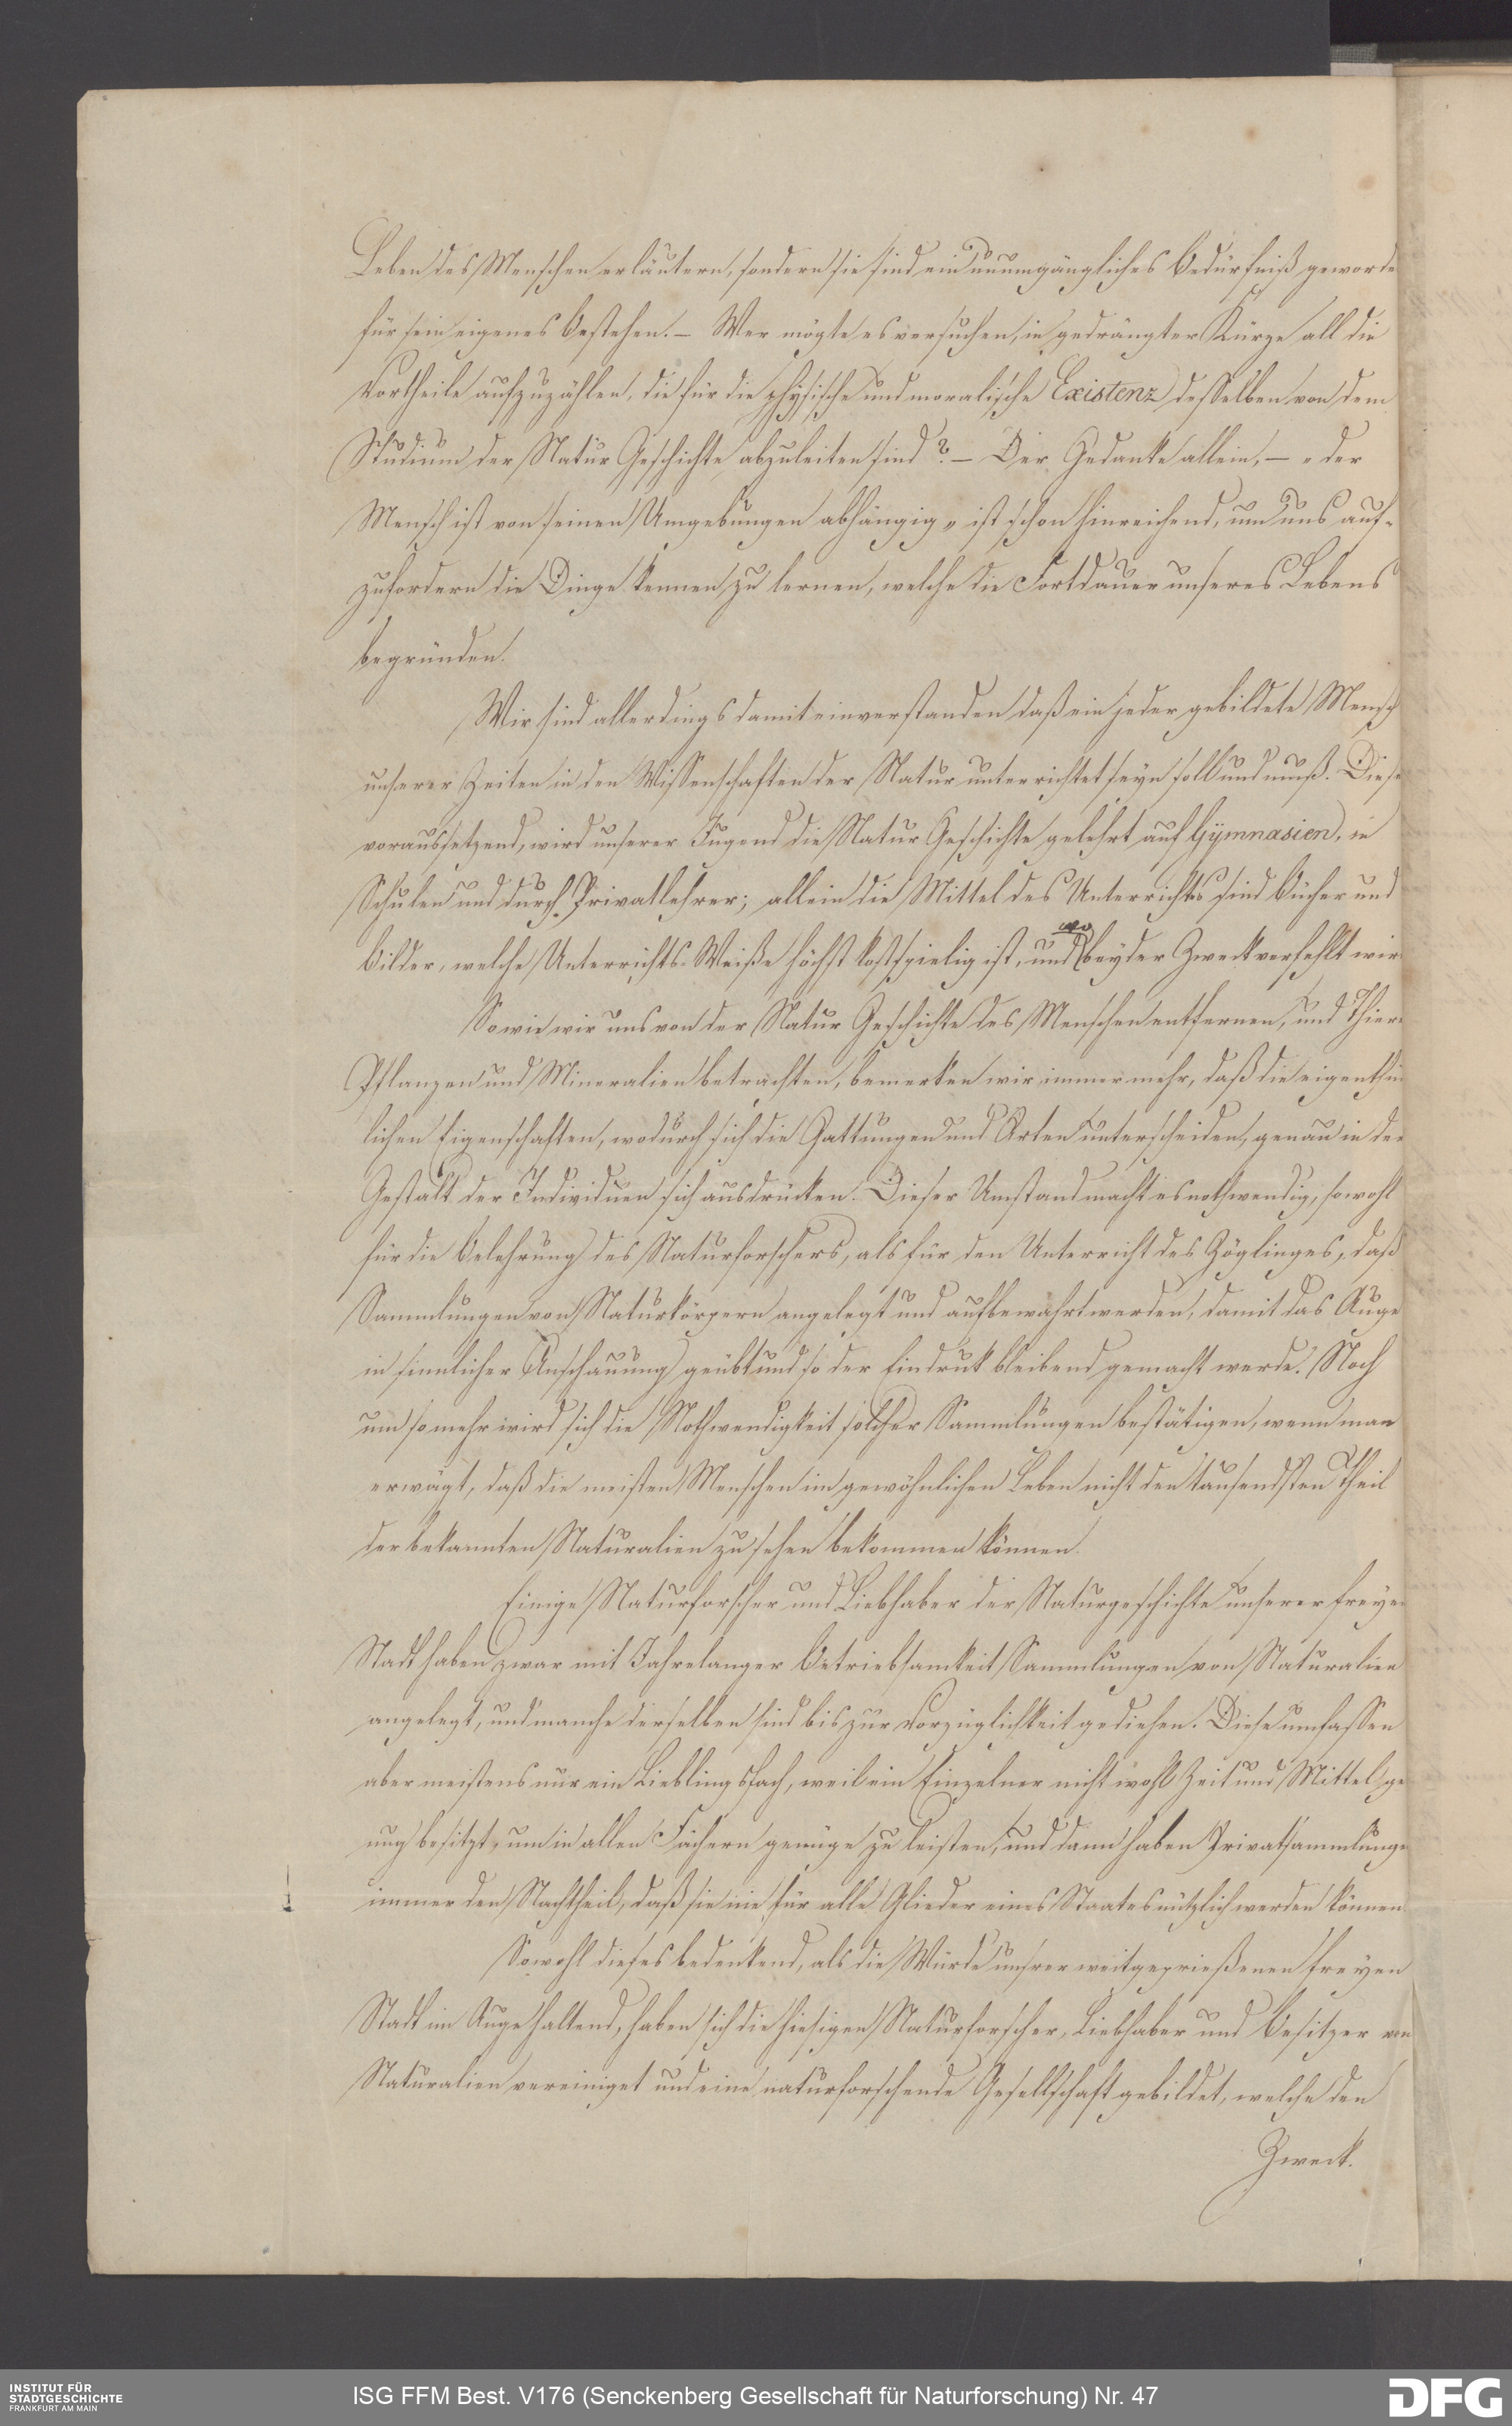 Leben des Menschen erläutern, sondern sie sind ein unumgängliches Bedürfniß geworde
für sein eigenes Bestehen. – Wer mögte es versuchen, in gedrängter Kürze all die
Vortheile aufzuzählen, die für die physische und moralische Existenz desselben von dem
Studium der Natur Geschichte abzuleiten sind? – Der Gedanke allein, – „der
Mensch ist von seinen Umgebungen abhängig„ ist schon hinreichend, um uns auf-
zufordern die Dinge kennen zu lernen, welche die Fortdauer unseres Lebens
begründen.
Wir sind allerdings damit einverstanden daß ein jeder gebildete Mensch
unserer Zeiten in den Wissenschaften der Natur unterrichtet seyn soll und muß. Diese
voraussetzend, wird unserer Jugend die Natur Geschichte gelehrt auf Gymnasien, in
Schulen und durch Privatlehrer; allein die Mittel des Unterrichts sind Bücher und
wo
Bilder, welche Unterrichts-Weiße höchst kostspielig ist, und bey der Zweck verfehlt wir
So wie wir uns von der Natur Geschichte des Menschen entfernen, und Thier
Pflanzen und Mineralien betrachten, bemerken wir immer mehr, daß die eigenthü
lichen Eigenschaften, wodurch sich die Gattungen und Arten unterscheiden, genau in der
Gestalt der Individuen sich ausdrücken. Dieser Umstand macht es nothwendig, sowohl
für die Belehrung des Naturforschers, als für den Unterricht des Zöglinges, daß
Sammlungen von Naturkörpern angelegt und aufbewahrt werden, damit das Auge
in sinnlicher Anschauung geübt und so der Eindruk bleibend gemacht werde. Noch
um so mehr wird sich die Nothwendigkeit solcher Sammlungen bestätigen, wenn man
erwägt, daß die meisten Menschen im gewöhnlichen Leben nicht den tausendsten Theil
der bekannten Naturalien zu sehen bekommen können.
Einige Naturforscher und Liebhaber der Naturgeschichte unserer freye
Stadt haben zwar mit Jahrelanger Betriebsamkeit Sammlungen von Naturalien
angelegt, und manche derselben sind bis zur Vorzüglichkeit gediehen. Diese umfassen
aber meistens nur ein Lieblingsfach, weil ein Einzelner nicht wohl Zeit und Mittel ge
nug besitzt, um in allen Fächern genüge zu leisten, und dann haben Privatsammlunge
immer den Nachtheil, daß sie nie für alle Glieder eines Staates nützlich werden können.
Sowohl dieses bedenkend, als die Würde unsrer weitgeprießenen freyen
Stadt im Auge haltend, haben sich die hiesigen Naturforscher, Liebhaber und Besitzer von
Naturalien vereiniget und eine naturforschende Gesellschaft gebildet, welche den
Zweck.
INSTITUT FÜR
STADTGESCHICHTE
FRANKFURT AM MAIN
ISG FFM Best. V176 (Senckenberg Gesellschaft für Naturforschung) Nr. 47
DFG